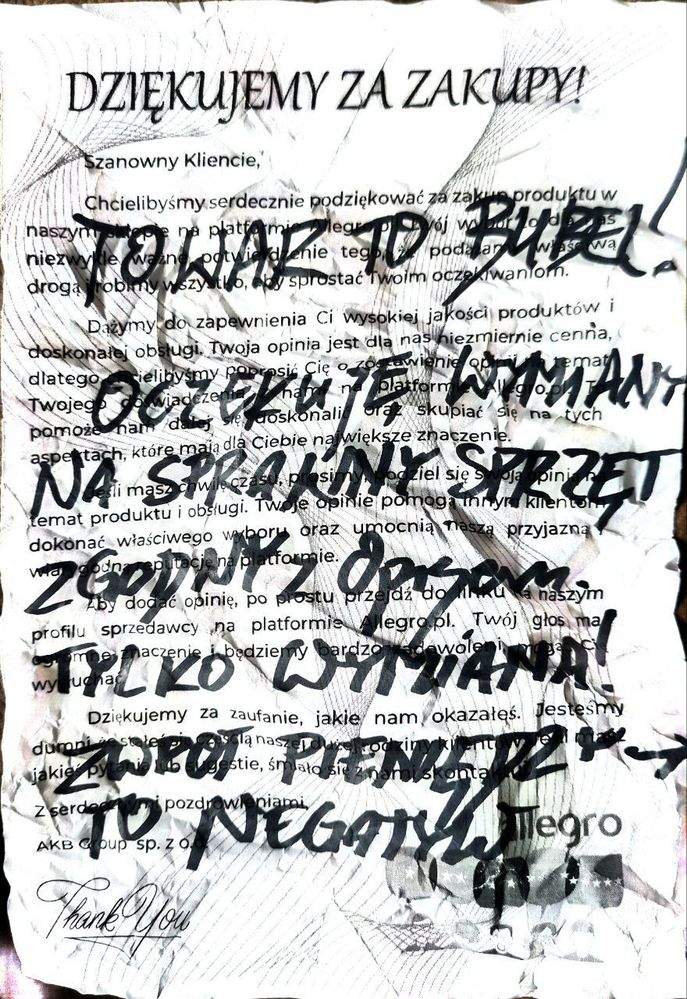 DZIĘKUJEMY ZA ZAKUPY!
Szanowny Kliencie,
Chcielibyśmy serdecznie podziękować za zakup produktu w
naszym sklepie na platformie Allegro.pl. Twój wybór to dla nas
TOWAR TO BUBEL!
niezwykle ważne potwierdzenie tego, że podążamy właściwą
drogą i robimy wszystko, aby sprostać Twoim oczekiwaniom.
Dążymy do zapewnienia Ci wysokiej jakości produktów i
doskonałej obsługi. Twoja opinia jest dla nas niezmiernie cenna,
dlatego chcielibyśmy poprosić Cię o zostawienie opinii na temat
OCZEKUJĘ WYMIANY
Twojego doświadczenia z nami na platformie Allegro.pl. To
pomoże nam dalej się doskonalić oraz skupiać się na tych
aspektach, które mają dla Ciebie największe znaczenie.
NA SPRAWNY SPRZĘT
Jeśli masz chwilę czasu, prosimy, podziel się swoją opinią na
temat produktu i obsługi. Twoje opinie pomogą innym klientom
dokonać właściwego wyboru oraz umocnią naszą przyjazną i
wiarygodną reputację na platformie.
ZGODNY Z Opisem.
Aby dodać opinię, po prostu przejdź do linku na naszym
profilu sprzedawcy na platformie Allegro.pl. Twój głos ma
ogromne znaczenie i będziemy bardzo zadowoleni, mogąc Cię
wysłuchać.
TYLKO WYMIANA!
Dziękujemy za zaufanie, jakie nam okazałeś. Jesteśmy
dumni, że stałeś się częścią naszej dużej rodziny klientów. Jeśli masz
ZWROT PIENIĘDZY →
jakieś pytania lub sugestie, śmiało się z nami skontaktuj.
Z serdecznymi pozdrowieniami,
TO NEGATYW
AKB Group sp. z o.o.
allegro
Thank You